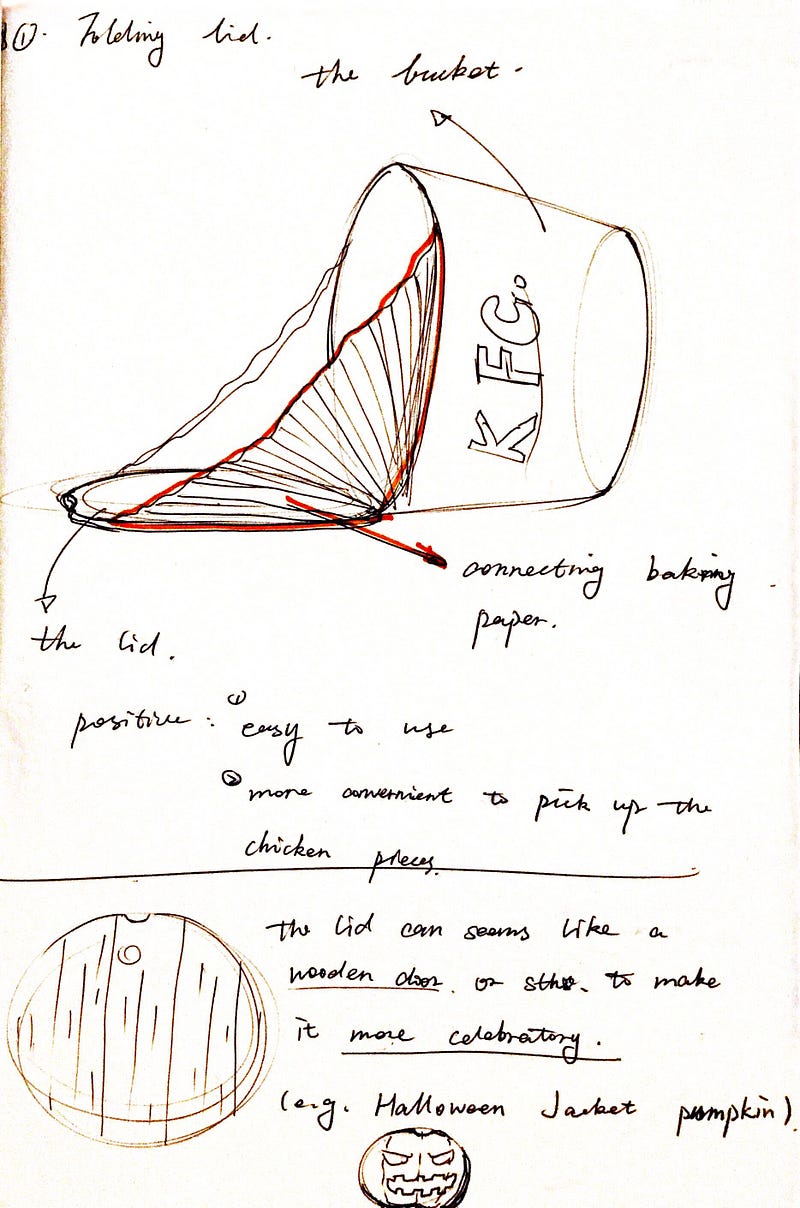 ①. Folding lid.
the bucket.
KFC.
connecting baking
paper.
the lid.
positive: ① easy to use
② more convenient to pick up the
chicken pieces.
the lid can seems like a
wooden door. or sth. to make
it more celebratory.
(e.g. Halloween Jacket pumpkin).